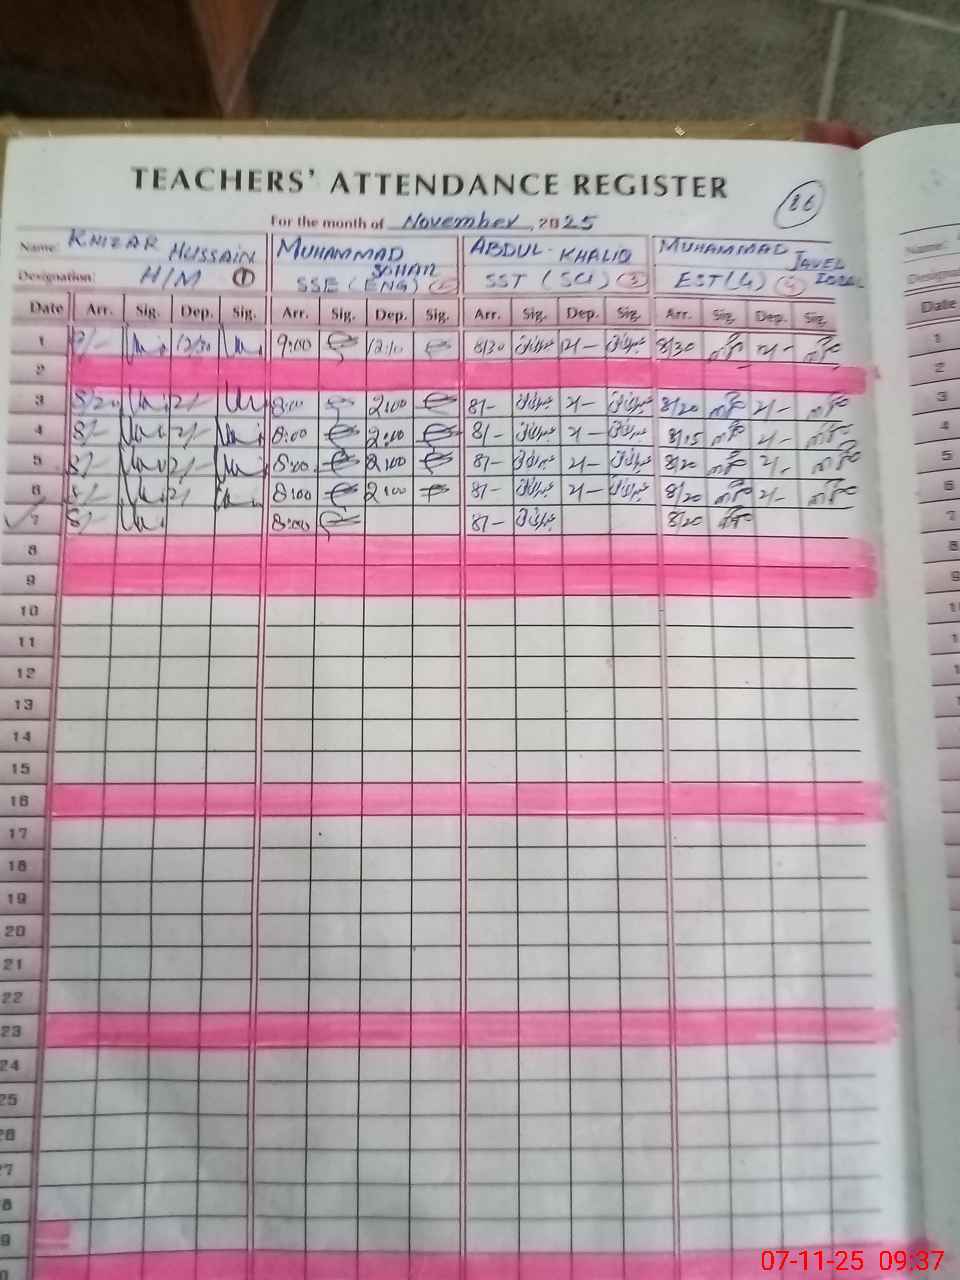 TEACHERS' ATTENDANCE REGISTER
86
For the month of November, 2025
Name: KHIZAR HUSSAIN MUHAMMAD ABDUL-KHALIQ MUHAMMAD JAVED IQBAL
Designation: H/M 1 SSE (ENG) 2 SST (SCI) 3 EST (4) 4
Date Arr. Sig. Dep. Sig. Arr. Sig. Dep. Sig. Arr. Sig. Dep. Sig. Arr. Sig. Dep. Sig. Date
1 12/30 9:00 8/30 2/- 8/30 2/- 1
2 2
3 8/20 2/- 8:00 2:00 8/- 2/- 8/20 2/- 3
4 8/- 2/- 8:00 2:00 8/- 2/- 8/15 2/- 4
5 8/- 2/- 8:00 2:00 8/- 2/- 8/20 2/- 5
6 8/- 2/- 8:00 2:00 8/- 2/- 8/20 2/- 6
7 8/- 8:00 8/- 8/20 7
8 8
9 9
10
11
12
13
14
15
16
17
18
19
20
21
22
23
24
25
26
27
8
9
07-11-25 09:37